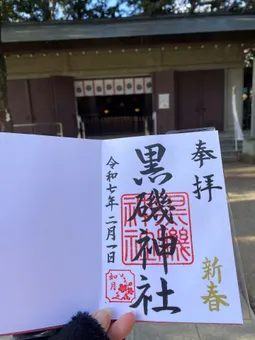 奉拝
黒磯神社
令和七年二月一日
新春
如月